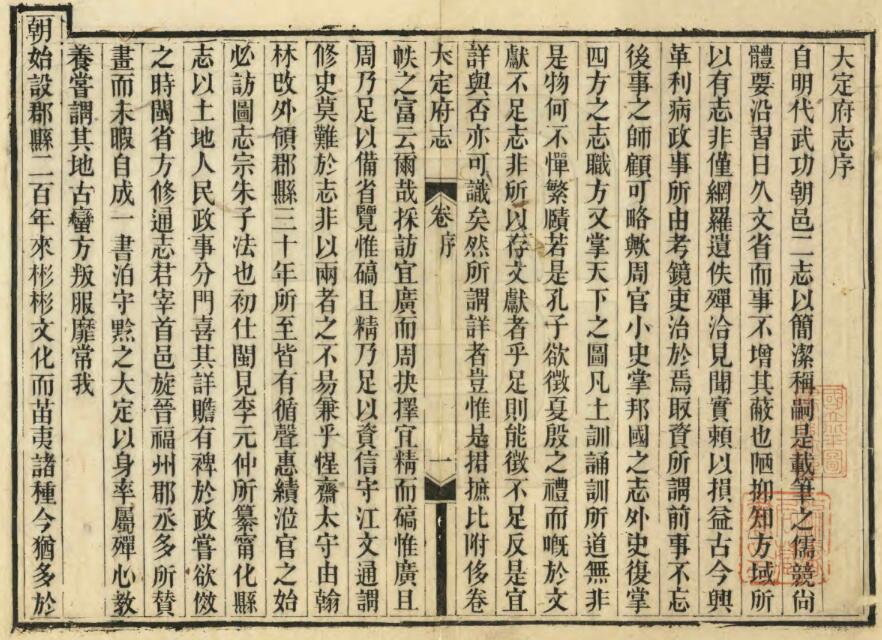 大定府志序
自明代武功朝邑二志以簡潔稱嗣是載筆之儒競尚
體要沿習日久文省而事不增其蔽也陋抑知方域所
以有志非僅網羅遺佚殫洽見聞實賴以損益古今興
革利病政事所由考鏡吏治於焉取資所謂前事不忘
後事之師顧可略歟周官小史掌邦國之志外史復掌
四方之志職方又掌天下之圖凡土訓誦訓所道無非
是物何不憚繁賾若是孔子欲徵夏殷之禮而嘅於文
獻不足志非所以存文獻者乎足則能徵不足反是宜
詳與否亦可識矣然所謂詳者豈惟是捃摭比附侈卷
大定府志 卷序 一
帙之富云爾哉採訪宜廣而周抉擇宜精而碻惟廣且
周乃足以備省覽惟碻且精乃足以資信守江文通謂
修史莫難於志非以兩者之不易兼乎惺齋太守由翰
林改外領郡縣三十年所至皆有循聲惠績涖官之始
必訪圖志宗朱子法也初仕閩見李元仲所纂甯化縣
志以土地人民政事分門喜其詳贍有裨於政嘗欲倣
之時閩省方修通志君宰首邑旋晉福州郡丞多所贊
畫而未暇自成一書洎守黔之大定以身率屬殫心教
養嘗謂其地古蠻方叛服靡常我
朝始設郡縣二百年來彬彬文化而苗夷諸種今猶多於